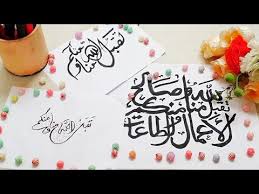 تقبل الله منا ومنكم
تقبل الله منا ومنكم صالح
الأعمال والطاعات
تقبل الله منا ومنكم